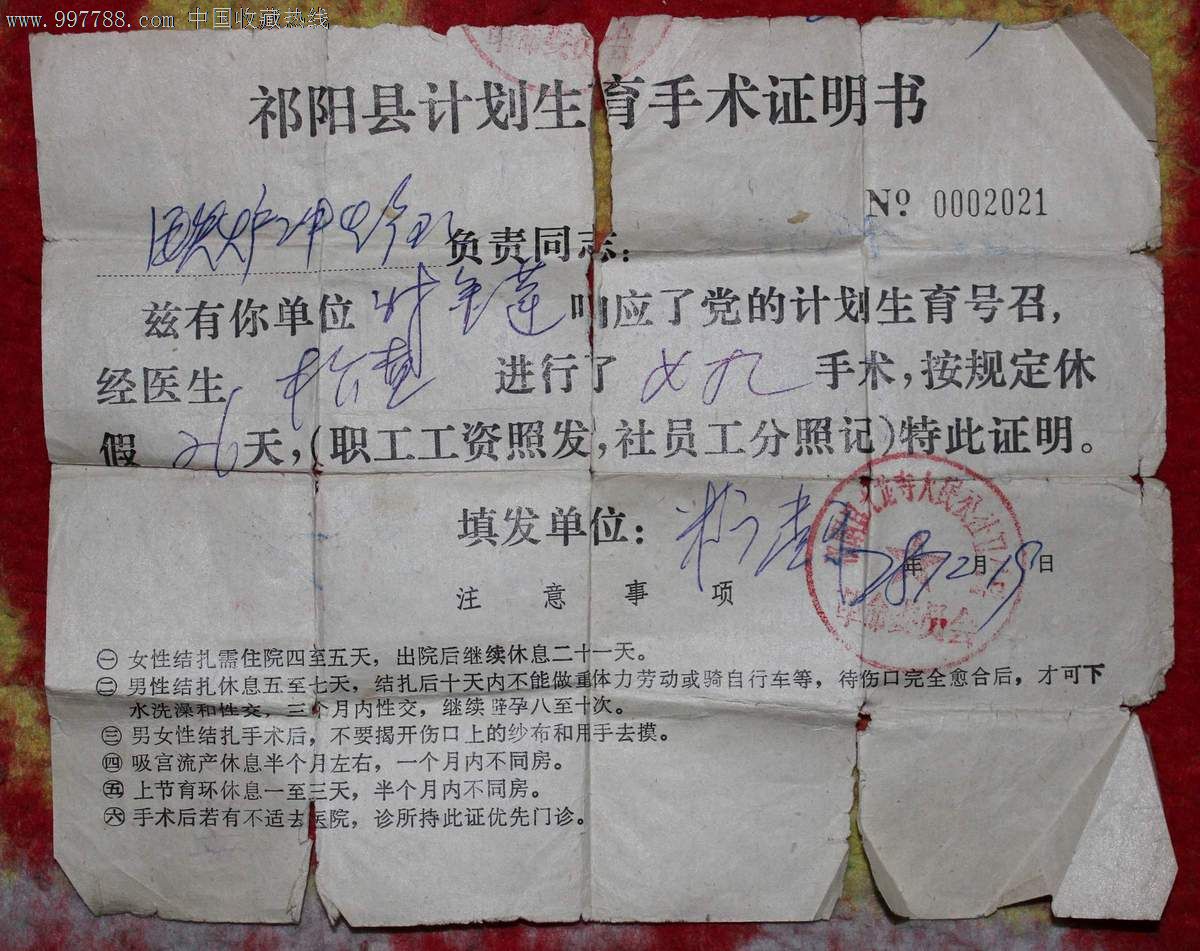 www.997788.com 中国收藏热线
祁阳县计划生育手术证明书
№ 0002021
负责同志：
兹有你单位 响应了党的计划生育号召，
经医生 进行了 女扎 手术，按规定休
假 26 天，（职工工资照发，社员工分照记）特此证明。
填发单位：
年12月19日
注意事项
㊀ 女性结扎需住院四至五天，出院后继续休息二十一天。
㊁ 男性结扎休息五至七天，结扎后十天内不能做重体力劳动或骑自行车等，待伤口完全愈合后，才可下
水洗澡和性交，三个月内性交，继续避孕八至十次。
㊂ 男女性结扎手术后，不要揭开伤口上的纱布和用手去摸。
㊃ 吸宫流产休息半个月左右，一个月内不同房。
㊄ 上节育环休息一至三天，半个月内不同房。
㊅ 手术后若有不适去医院，诊所持此证优先门诊。